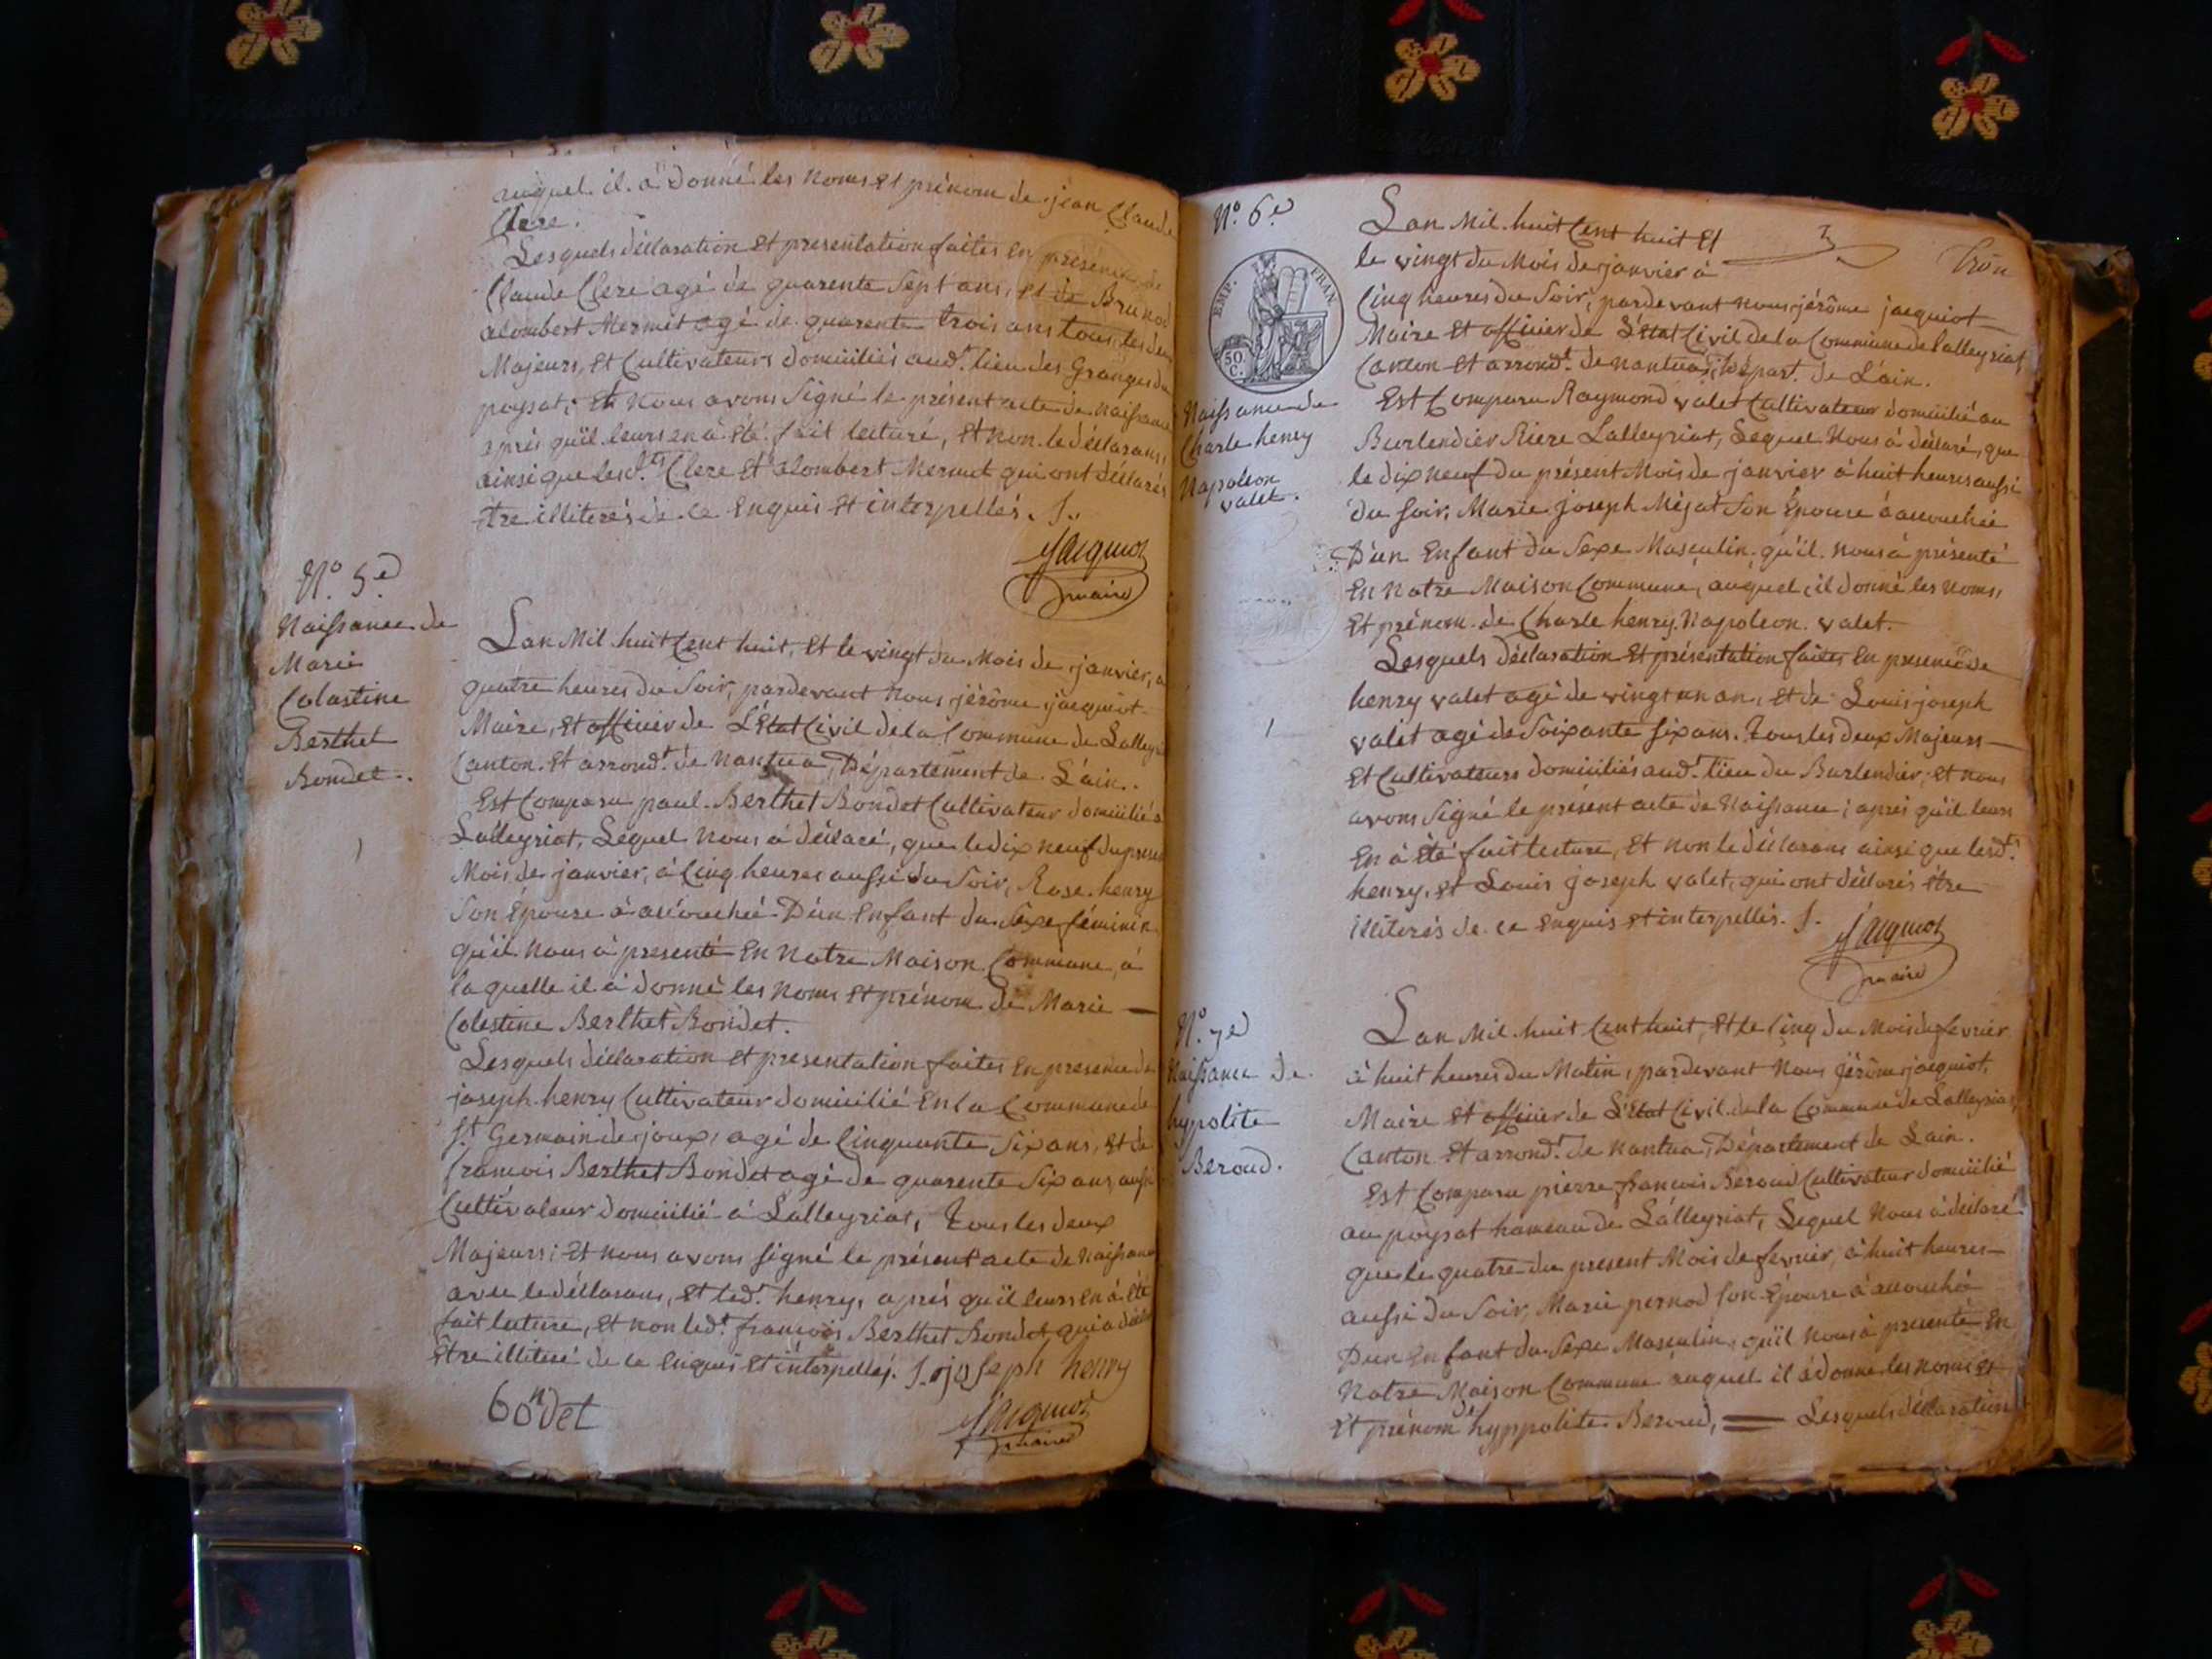 auquel il a donné les noms et prénom de jean Claude
Clerc.
Lesquels déclaration et presentation faites en présence de
Claude Clerc agé de quarente Sept ans, et de Brunod
alombert Mermet agé de quarente trois ans tous les deux
Majeurs, et Cultivateurs domiciliés aud.t lieu des Granges du
poysat, et nous avons signé le présent acte de naissance
aprés qu'il leurs en à été fait lecture, et non le déclarans,
ainsi que lesd.ts Clerc et alombert Mermet qui ont déclarés
être illiterés de ce enquis et interpellés. J.
Jacquiot
maire
N.o 5.e
Naissance de
Marie
Colastine
Berthet
Bondet.
Lan Mil huit Cent huit, et le vingt du Mois de janvier, a
quatre heures du soir, pardevant nous jérôme jacquiot
Maire, et officier de L'état Civil de la Commune de Lalleyriat
Canton et arrond.t de Nantua, Département de L'ain.
Est Comparu paul Berthet Bondet Cultivateur domicilié à
Lalleyriat, Lequel nous a déclaré, que le dix neuf du present
Mois de janvier, à Cinq heures aussi du soir, Rose henry
Son épouse à accouchée D'un enfant du Sexe féminin
qu'il nous à presenté en notre Maison Commune, à
laquelle il à donné les noms et prénom de Marie
Colestine Berthet Bondet.
Lesquels déclaration et presentation faites en presence de
joseph henry Cultivateur domicilié en la Commune de
S.t Germain de joux, agé de Cinquante six ans, et de
francois Berthet Bondet agé de quarente six ans, aussi
Cultivateur domicilié à Lalleyriat, Tous les deux
Majeurs; et nous avons signé le présent acte de naissance
avec le déclarans, et led.t henry, aprés qu'il leurs en à été
fait lecture, et non led.t francois Berthet Bondet qui a déclaré
être illiteré de ce enquis et interpellés. J. joseph henry
bondet
Jacquiot
maire
N.o 6.e
EMP. FRAN.
50.
C.
Naissance de
Charle henry
Napoleon
valet.
Lan Mil huit Cent huit et
le vingt du Mois de janvier à
Cinq heures du Soir, pardevant nous jérôme jacquiot
Maire et officier de L'état Civil de la Commune de Lalleyriat
Canton et arrond.t de nantua, Départ.t de L'ain.
Est Comparu Raymond valet Cultivateur domicilié au
Burlendier Riere Lalleyriat, Lequel Nous à déclaré, que
le dix neuf du présent Mois de janvier à huit heures aussi
du soir, Marie joseph Mégat Son Épouse à accouchée
D'un Enfant du Sexe Masculin qu'il nous à présenté
en Notre Maison Commune, auquel, il donné les noms,
et prénom de Charle henry Napoleon valet.
Lesquels déclaration et présentation faites en presence de
henry valet agé de vingt un an, et de Louis joseph
valet agé de Soixante six ans. Tous les deux Majeurs
et Cultivateurs domiciliés aud.t lieu du Burlendier, et nous
avons signé le présent acte de Naissance; aprés qu'il leurs
en à été fait lecture, et non le déclarans ainsi que lesd.ts
henry, et Louis joseph valet, qui ont déclarés être
illiterés de ce enquis et interpellés. J.
Jacquiot
maire
N.o 7.e
Naissance de
hypolite
Beroud.
Lan Mil huit Cent huit, et le Cinq du Mois de fevrier
à huit heures du Matin, pardevant Nous jérôme jacquiot,
Maire et officier de L'état Civil de la Commune de Lalleyriat,
Canton et arrond.t de nantua, Département de Lain.
Est Comparu pierre francois Beroud Cultivateur domicilié
au poysat hameau de Lalleyriat, Lequel Nous à déclaré
que le quatre du present Mois de fevrier, à huit heures
aussi du Soir, Marie pernod son Épouse à accouchée
D'un enfant du Sexe Masculin, qu'il nous à presenté en
Notre Maison Commune auquel il à donné les noms et
et prénom de hyppolite Beroud, = Lesquels déclaration